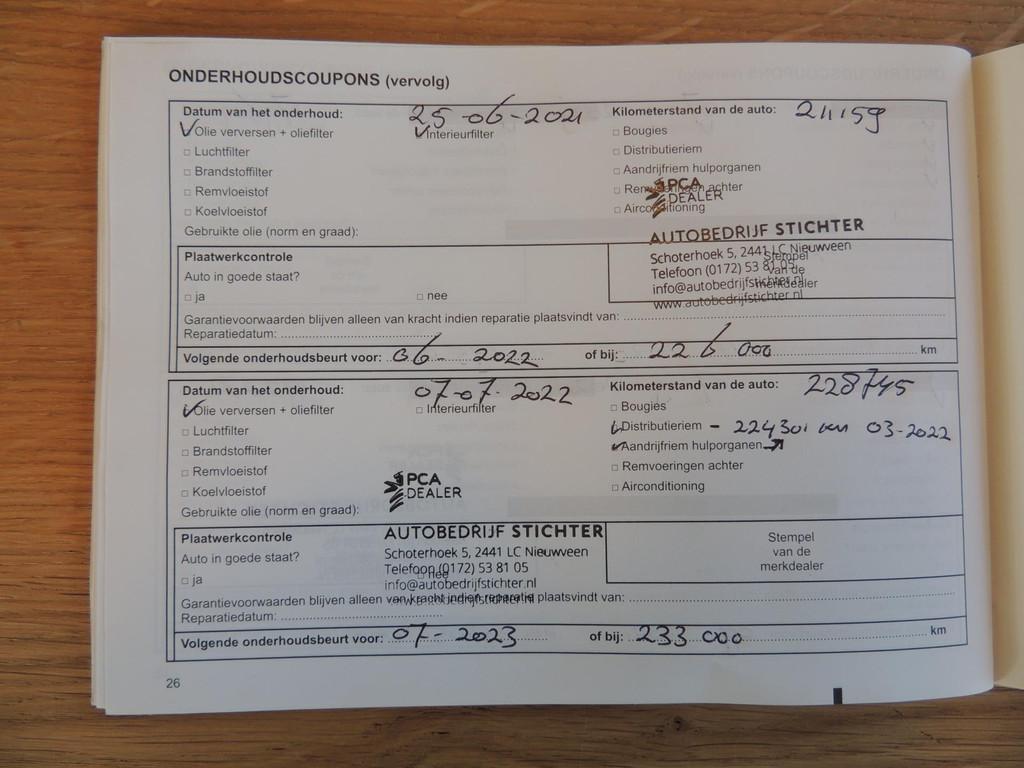 ONDERHOUDSCOUPONS (vervolg)
Datum van het onderhoud: 25-06-2021 Kilometerstand van de auto: 211159
Olie verversen + oliefilter Interieurfilter Bougies
Luchtfilter Distributieriem
Brandstoffilter Aandrijfriem hulporganen
Remvloeistof Remvoeringen achter
PCA
DEALER
Koelvloeistof Airconditioning
Gebruikte olie (norm en graad):
AUTOBEDRIJF STICHTER
Plaatwerkcontrole Schoterhoek 5, 2441 LC Nieuwveen
Stempel
Auto in goede staat? Telefoon (0172) 53 81 05
van de
info@autobedrijfstichter.nl
merkdealer
ja nee www.autobedrijfstichter.nl
Garantievoorwaarden blijven alleen van kracht indien reparatie plaatsvindt van:
Reparatiedatum:
Volgende onderhoudsbeurt voor: 06-2022 of bij: 226 000 km
Datum van het onderhoud: 07-07-2022 Kilometerstand van de auto: 228745
Olie verversen + oliefilter Interieurfilter Bougies
Luchtfilter Distributieriem - 224301 km 03-2022
Brandstoffilter Aandrijfriem hulporganen
Remvloeistof Remvoeringen achter
PCA
DEALER
Koelvloeistof Airconditioning
Gebruikte olie (norm en graad):
AUTOBEDRIJF STICHTER
Plaatwerkcontrole Schoterhoek 5, 2441 LC Nieuwveen Stempel
Auto in goede staat? Telefoon (0172) 53 81 05 van de
ja nee info@autobedrijfstichter.nl merkdealer
www.autobedrijfstichter.nl
Garantievoorwaarden blijven alleen van kracht indien reparatie plaatsvindt van:
Reparatiedatum:
Volgende onderhoudsbeurt voor: 07-2023 of bij: 233 000 km
26